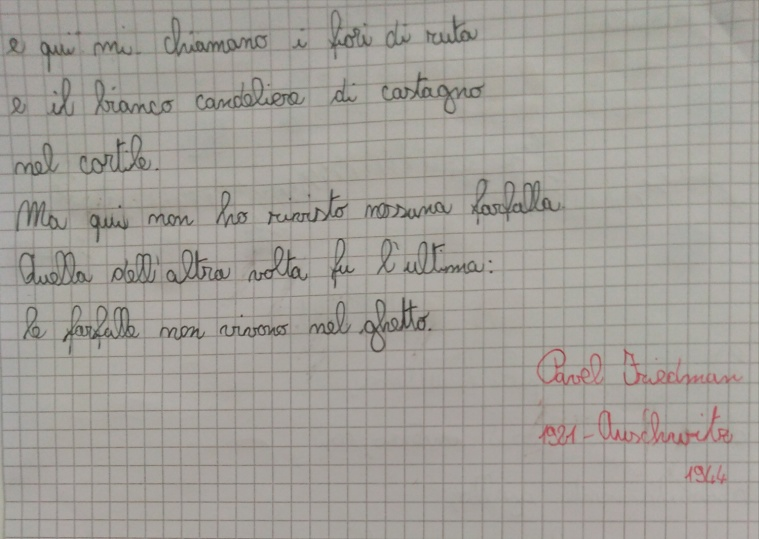 e qui mi chiamano i fiori di ruta
e il bianco candeliere di castagno
nel cortile.
Ma qui non ho rivisto nessuna farfalla.
Quella dell'altra volta fu l'ultima:
le farfalle non vivono nel ghetto.
Pavel Friedman
1921-Auschwitz
1944